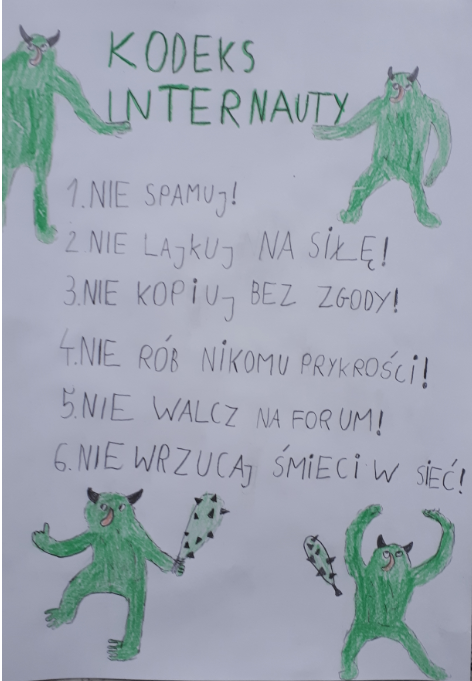 KODEKS
INTERNAUTY
1. NIE SPAMUJ!
2. NIE LAJKUJ NA SIŁĘ!
3. NIE KOPIUJ BEZ ZGODY!
4. NIE RÓB NIKOMU PRYKROŚCI!
5. NIE WALCZ NA FORUM!
6. NIE WRZUCAJ ŚMIECI W SIEĆ!